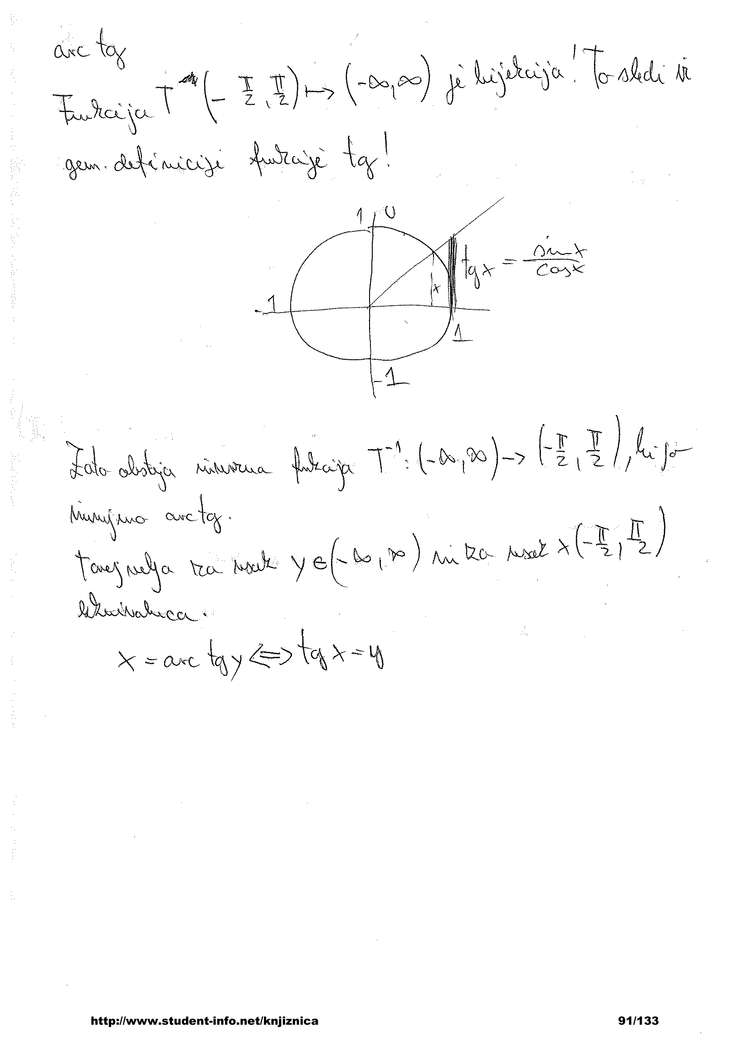 arc tg
Funkcija T (-π/2, π/2) ↦ (-∞, ∞) je bijekcija! To sledi iz
geom. definicije funkcije tg!
1 U
tg x = sin x / cos x
x
-1
1
-1
Zato obstaja inverzna funkcija T⁻¹: (-∞, ∞) → (-π/2, π/2), ki jo
imenujmo arc tg.
Torej velja za vsak y ∈ (-∞, ∞) in za vsak x (-π/2, π/2)
ekvivalenca.
x = arc tg y ⇔ tg x = y
http://www.student-info.net/knjiznica 91/133